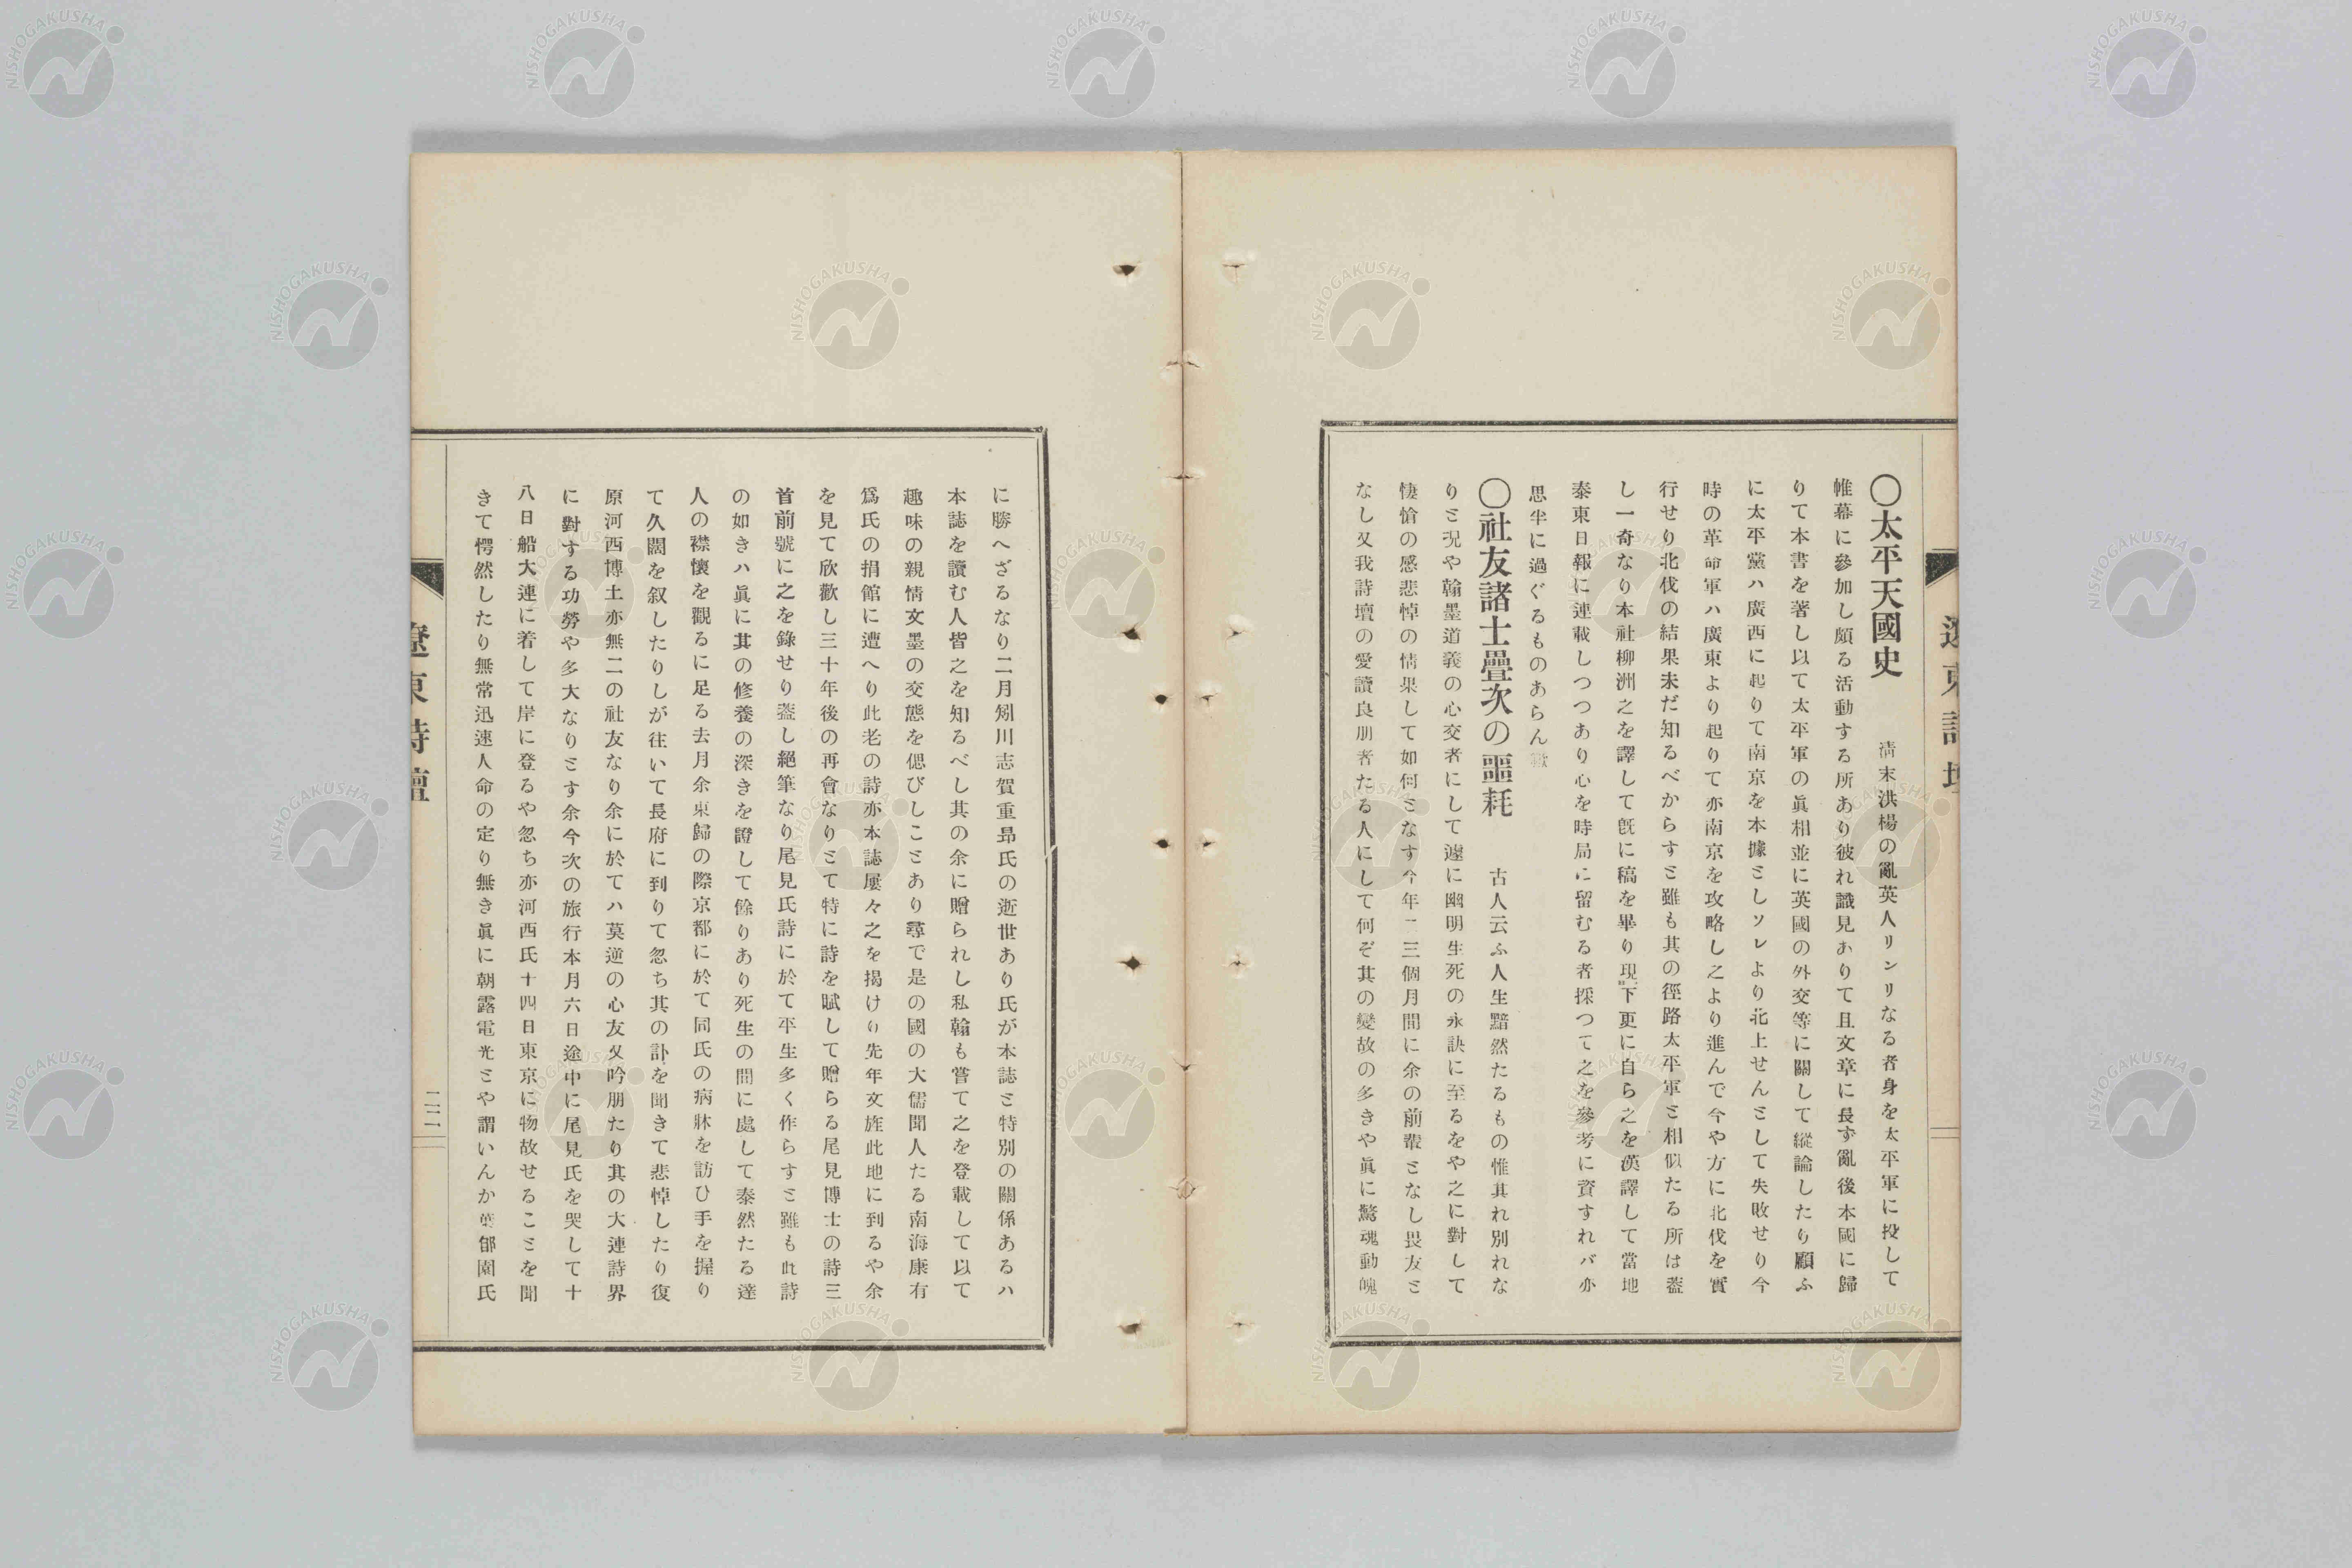 〇太平天國史　清末洪楊の亂英人リンリなる者身を太平軍に投して
帷幕に參加し頗る活動する所あり彼れ識見ありて且文章に長ず亂後本國に歸
りて本書を著し以て太平軍の眞相並に英國の外交等に關して縱論したり顧ふ
に太平黨ハ廣西に起りて南京を本據ミしソレより北上せんミして失敗せり今
時の革命軍ハ廣東より起りて亦南京を攻略し之より進んで今や方に北伐を實
行せり北伐の結果未だ知るべからすミ雖も其の徑路太平軍ミ相似たる所は蓋
し一奇なり本社柳洲之を譯して既に稿を畢り現下更に自ら之を漢譯して當地
泰東日報に連載しつつあり心を時局に留むる者採つて之を參考に資すれバ亦
思半に過ぐるものあらん歟
〇社友諸士疊次の噩耗　古人云ふ人生黯然たるもの惟其れ別れな
りミ况や翰墨道義の心交者にして遽に幽明生死の永訣に至るをや之に對して
悽愴の感悲悼の情果して如何ミなす今年二三個月間に余の前輩ミなし畏友ミ
なし又我詩壇の愛讀良朋者たる人にして何ぞ其の變故の多きや眞に驚魂動魄
に勝へざるなり二月矧川志賀重昂氏の逝世あり氏が本誌ミ特別の關係あるハ
本誌を讀む人皆之を知るべし其の余に贈られし私翰も嘗て之を登載して以て
趣味の親情文墨の交態を偲びしこミあり尋で是の國の大儒聞人たる南海康有
爲氏の捐館に遭へり此老の詩亦本誌屢々之を揭けり先年文旌此地に到るや余
を見て欣歡し三十年後の再會なりミて特に詩を賦して贈らる尾見博士の詩三
首前號に之を錄せり蓋し絕筆なり尾見氏詩に於て平生多く作らすミ雖も此詩
の如きハ眞に其の修養の深きを證して餘りあり死生の間に處して泰然たる達
人の襟懷を觀るに足る去月余東歸の際京都に於て同氏の病牀を訪ひ手を握り
て久闊を叙したりしが往いて長府に到りて忽ち其の訃を聞きて悲悼したり復
原河西博士亦無二の社友なり余に於てハ莫逆の心友又吟朋たり其の大連詩界
に對する功勞や多大なりミす余今次の旅行本月六日途中に尾見氏を哭して十
八日船大連に着して岸に登るや忽ち亦河西氏十四日東京に物故せるこミを聞
きて愕然したり無常迅速人命の定り無き眞に朝露電光ミや謂いんか葉郋園氏
遼東詩壇
二二